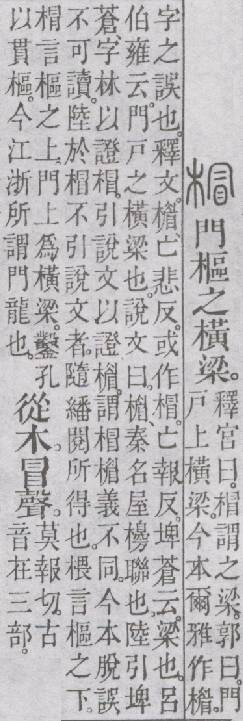 㮘門樞之橫梁。
釋宮曰。㮘謂之梁。郭曰。門
戶上橫梁今本爾雅作楣。
字之誤也。釋文楣亡悲反。或作㮘。亡報反。埤蒼云。梁也。呂
伯雍云。門戶之橫梁也。說文曰。楣、秦名屋櫋聯也。陸引埤
蒼、字林以證㮘。引說文以證楣。謂㮘楣義不同。今本脫誤
不可讀。陸於㮘不引說文者。隨繙閱所得也。椳言樞之下。
㮘言樞之上。門上爲橫梁。鑿孔
以貫樞。今江浙所謂門龍也。
從木冒聲。
莫報切。古
音在三部。